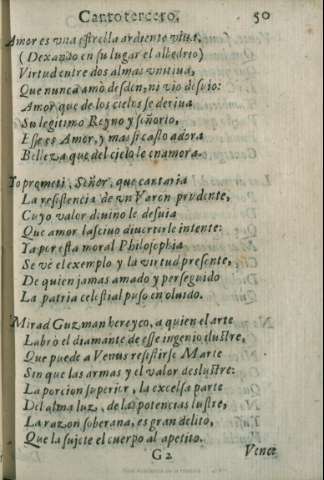 Canto tercero. 50
Amor es vna estrella ardiente viua,
(Dexando en su lugar el albedrio)
Virtud entre dos almas vnitiua,
Que nunca amò desden, ni vio desuio:
Amor que de los cielos se deriua
Su legitimo Reyno y señorio,
Esse es Amor, y mas si casto adora
Belleza que del cielo le enamora.
Yo prometi, Señor, que cantaria
La resistencia de vn Varon prudente,
Cuyo valor diuino le desuia
Que amor lasciuo diuertirle intente:
Ya por esta moral Philosophia
Se vè el exemplo y la virtud presente,
De quien jamas amado y perseguido
La patria celestial puso en oluido.
Mirad Guzman hereyco, a quien el arte
Labro el diamante de esse ingenio ilustre,
Que puede a Venus resistirse Marte
Sin que las armas y el valor deslustre:
La porcion superior, la excelsa parte
Del alma luz, de las potencias lustre,
La razon soberana, es gran delito,
Que la sujete el cuerpo al apetito.
G2 Vence